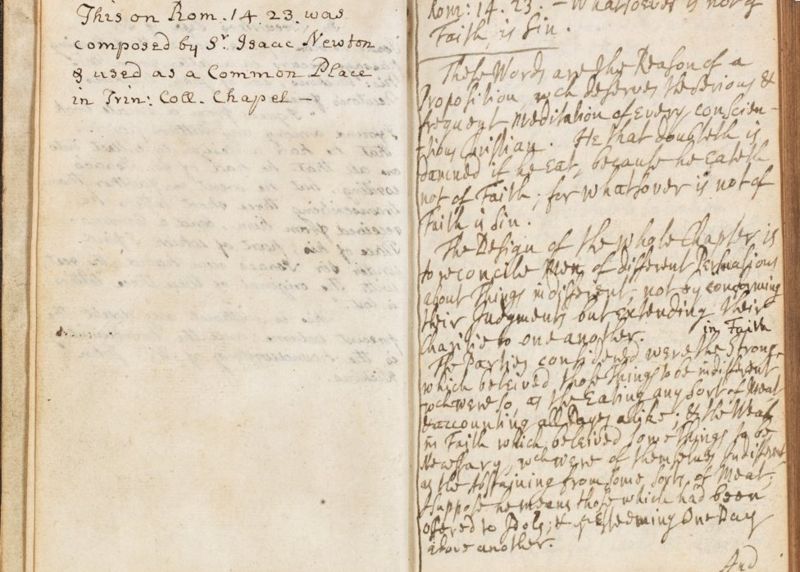 This on Rom. 14. 23. was
composed by Sr. Isaac Newton
& used as a Common Place
in Trin: Coll. Chapel —
Rom: 14. 23. – Whatsoever is not of
Faith, is Sin.
These Words are the Reason of a
Proposition, wch deserves the Serious &
frequent Meditation of Every Conscien-
tious Christian. He that doubteth is
damned if he Eat, because he Eateth
not of Faith; for whatsover is not of
Faith is Sin.
The Design of the whole Chapter is
to reconcile Men of different Perswasions
about Things indifferent not by conforming
their Judgments but Extending their
Charitie to one another.
in Faith
The Parties considered were the Strong
which beleived those Things to be indifferent
wch were so, as the Eating any Sort of Meat
& accounting all Days alike. & the Weak
in Faith which beleived some things to be
Necessary, wch were of themselves Indifferent
as the Abstaining from some Sorts of Meat.
I suppose he means those which had been
offered to Idols, & Esteeming One Day
above another.
And